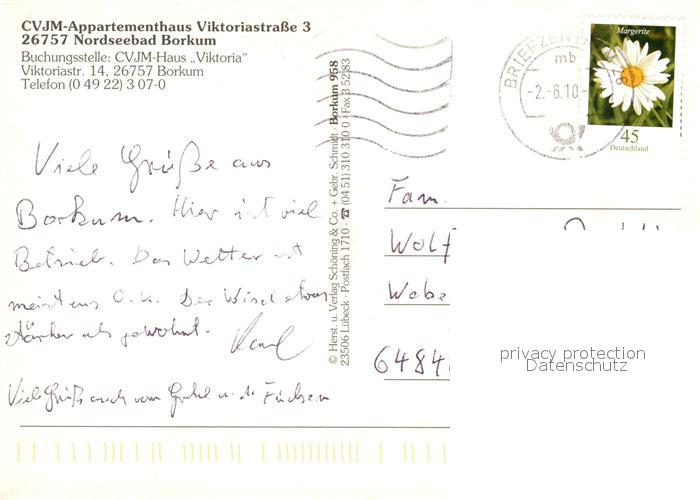 CVJM-Appartementhaus Viktoriastraße 3
26757 Nordseebad Borkum
Buchungsstelle: CVJM-Haus „Viktoria“
Viktoriastr. 14, 26757 Borkum
Telefon (0 49 22) 3 07-0
Viele Grüße aus
Borkum. Hier ist viel
Betrieb. Das Wetter ist
meistens O.K. Der Wind etwas
stärker als gewohnt.
Karl
Viele Grüße auch von
© Herst. u. Verlag Schöning & Co. + Gebr. Schmidt · Borkum 958
23506 Lübeck · Postfach 1710 · ☎ (04 51) 310 310 · Fax 3 52 83
BRIEFZENTRUM
mb
-2.-6.10.-
Margerite
45
Deutschland
Fam.
Wolf
Webe
6484
privacy protection
Datenschutz